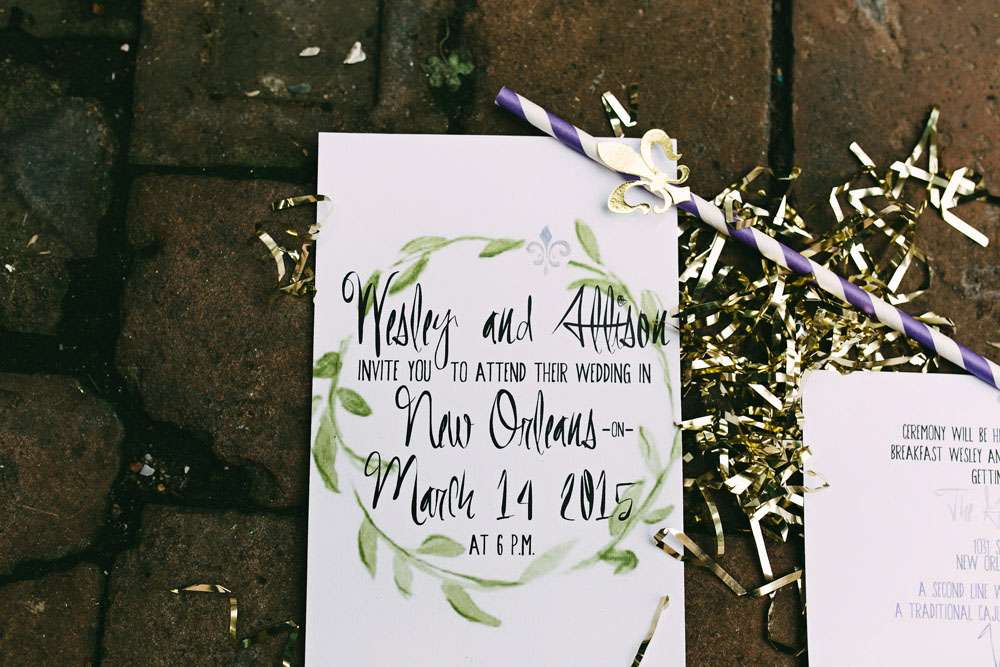 Wesley and Allison
INVITE YOU TO ATTEND THEIR WEDDING IN
New Orleans -ON-
March 14 2015
AT 6 P.M.
CEREMONY WILL BE
BREAKFAST WESLEY
The
1031
NEW
A SECOND LINE
A TRADITIONAL